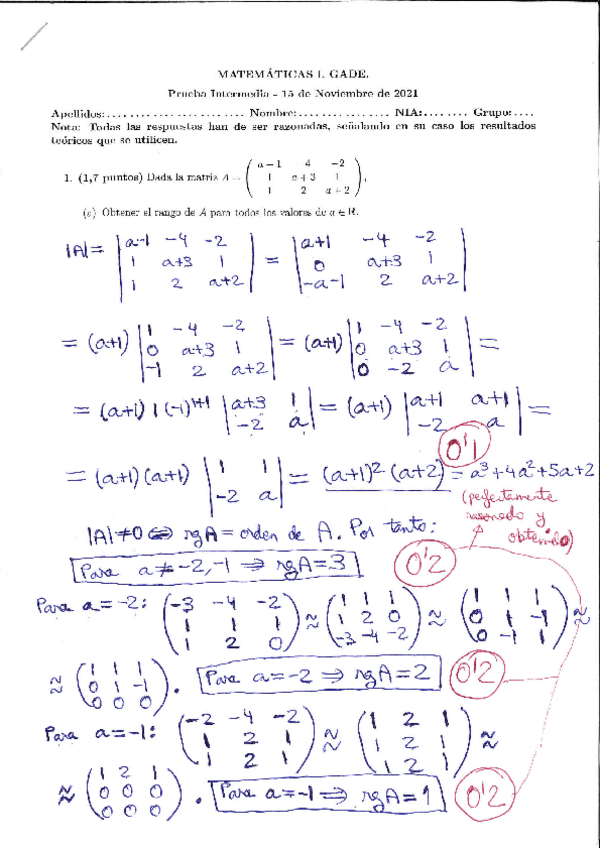 MATEMÁTICAS I. GADE.
Prueba Intermedia - 15 de Noviembre de 2021
Apellidos:........................ Nombre:................ NIA:........ Grupo:....
Nota: Todas las respuestas han de ser razonadas, señalando en su caso los resultados
teóricos que se utilicen.
1. (1,7 puntos) Dada la matriz A = ( a − 1 4 −2
1 a + 3 1
1 2 a + 2 ),
Obtener el rango de A para todos los valores de a ∈ R.
|A| = | a-1 -4 -2 | = | a+1 -4 -2 |
| 1 a+3 1 | | 0 a+3 1 |
| 1 2 a+2 | | -a-1 2 a+2 |
= (a+1) | 1 -4 -2 | = (a+1) | 1 -4 -2 | =
| 0 a+3 1 | | 0 a+3 1 |
| -1 2 a+2 | | 0 -2 a |
= (a+1) 1 (-1)^1+1 | a+3 1 | = (a+1) | a+1 a+1 | =
| -2 a | | -2 a |
0'1
= (a+1)(a+1) | 1 1 | = (a+1)² (a+2) = a³+4a²+5a+2
| -2 a |
(perfectamente
razonado y
obtenido)
|A| ≠ 0 ⇔ rgA = orden de A. Por tanto:
Para a ≠ -2, -1 ⇒ rgA = 3 0'2
Para a = -2: ( -3 -4 -2 ) ≈ ( 1 1 1 ) ≈ ( 1 1 1 ) ≈
( 1 1 1 ) ( 1 2 0 ) ( 0 1 -1 )
( 1 2 0 ) ( -3 -4 -2 ) ( 0 -1 1 )
≈ ( 1 1 1 ) . Para a = -2 ⇒ rgA = 2 0'2
( 0 1 -1 )
( 0 0 0 )
Para a = -1: ( -2 -4 -2 ) ≈ ( 1 2 1 ) ≈
( 1 2 1 ) ( 1 2 1 )
( 1 2 1 ) ( 1 2 1 )
≈ ( 1 2 1 ) . Para a = -1 ⇒ rgA = 1 0'2
( 0 0 0 )
( 0 0 0 )